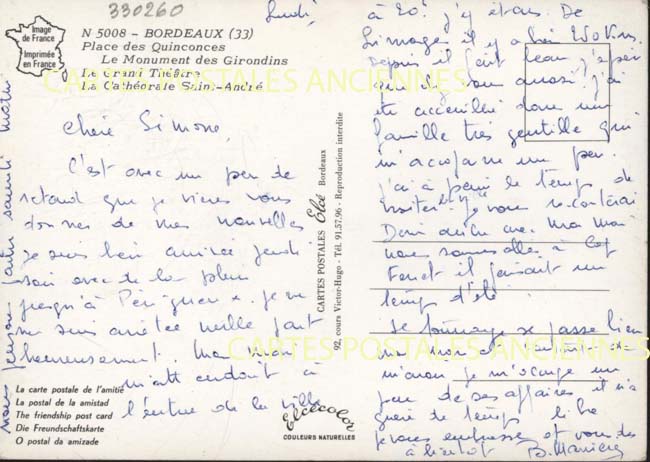 330260
Lundi
Image
de France
Imprimée
en France
N 5008 - BORDEAUX (33)
Place des Quinconces
Le Monument des Girondins
Le Grand Théâtre
La Cathédrale Saint-André
CARTES POSTALES ANCIENNES
Chère Simone,
C'est avec un peu de
retard que je viens vous
donner de mes nouvelles
je suis bien arrivée jeudi
soir avec de la pluie
jusqu'à Périgueux. je ne
me suis arrêtée nulle part
heureusement. Mon mari
m'attendait à
l'entrée de la ville
à 20h j'y étais. De
Limoges il y a bien 220 Kms.
depuis il fait beau j'espère
que vous aussi. j'ai
été accueillie dans une
famille très gentille qui
un peu.
j'ai à peine le temps de
visiter je vous raconterai
avec mon mari
nous sommes allés à Cap
Ferret il faisait un
temps d'été.
Le passe bien
mon mari
je m'occupe un
peu de ses affaires il n'a
guère de temps libre
je vous embrasse et vous dis
à bientôt
nous pensons partir samedi matin
CARTES POSTALES Elcé Bordeaux
92, cours Victor-Hugo - Tél. 91.57.96 - Reproduction interdite
CARTES POSTALES ANCIENNES
La carte postale de l'amitié
La postal de la amistad
The friendship post card
Die Freundschaftskarte
O postal da amizade
Elcécolor
COULEURS NATURELLES